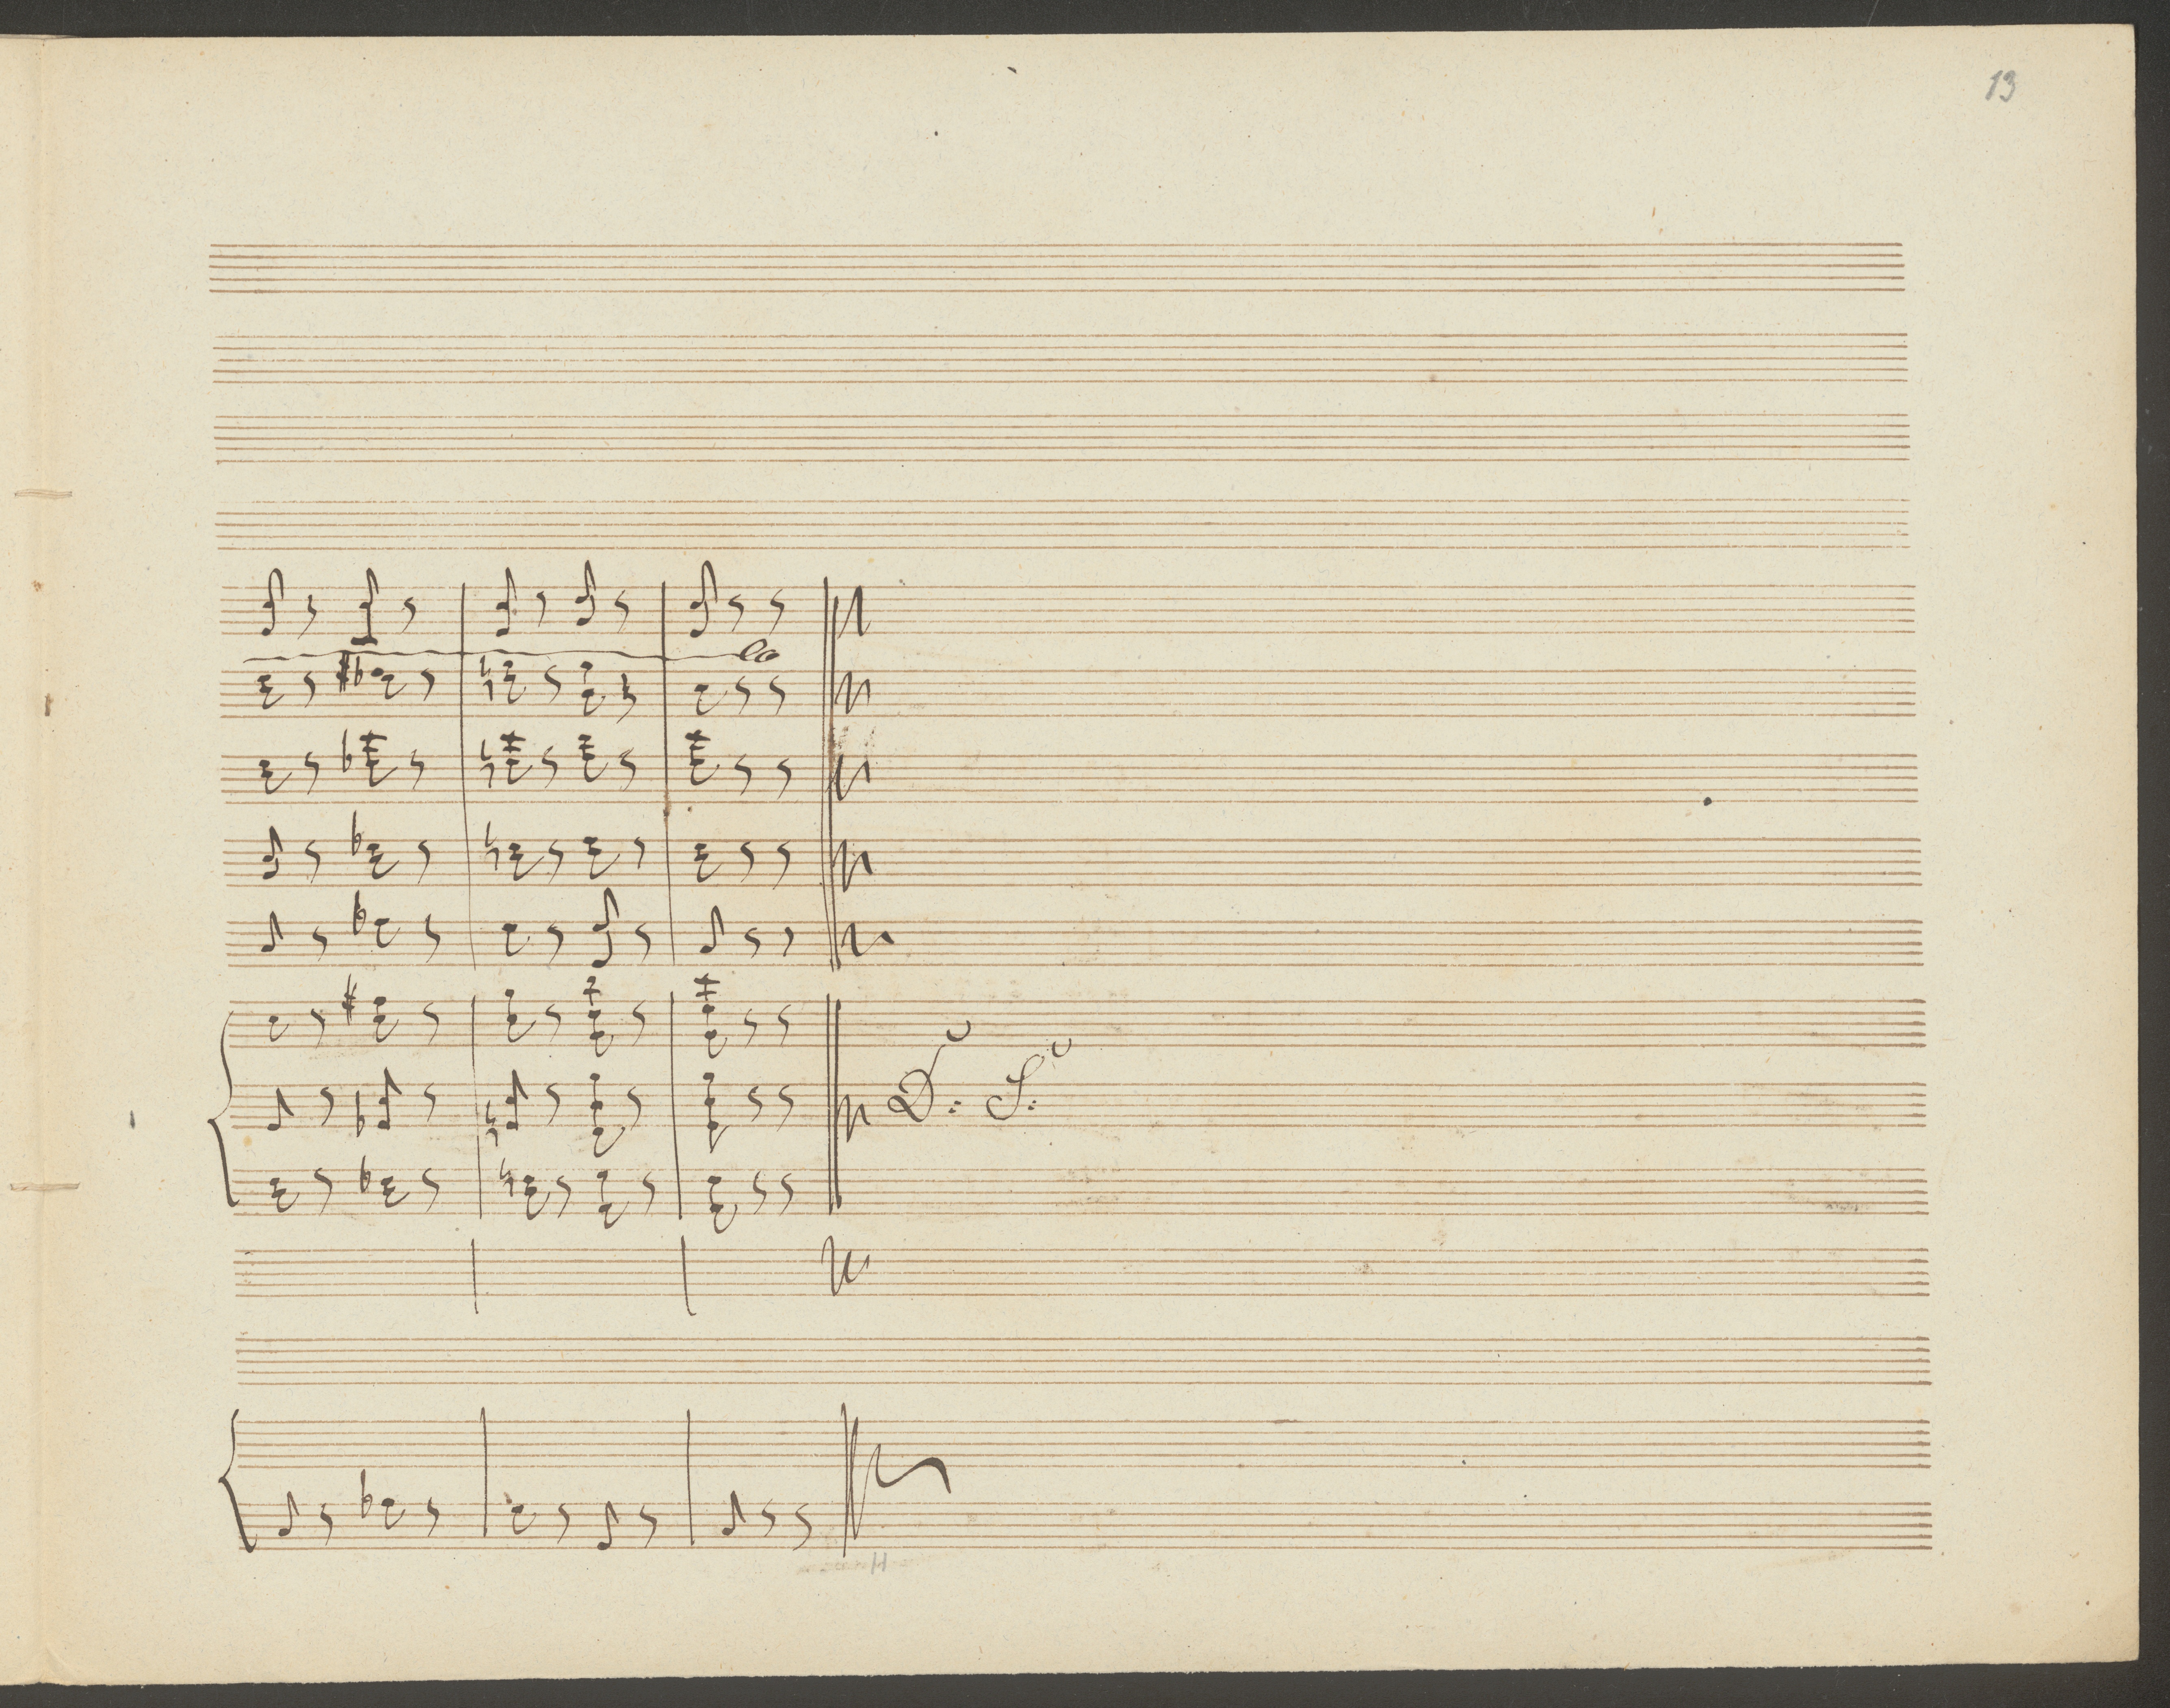 13
D. S.
H